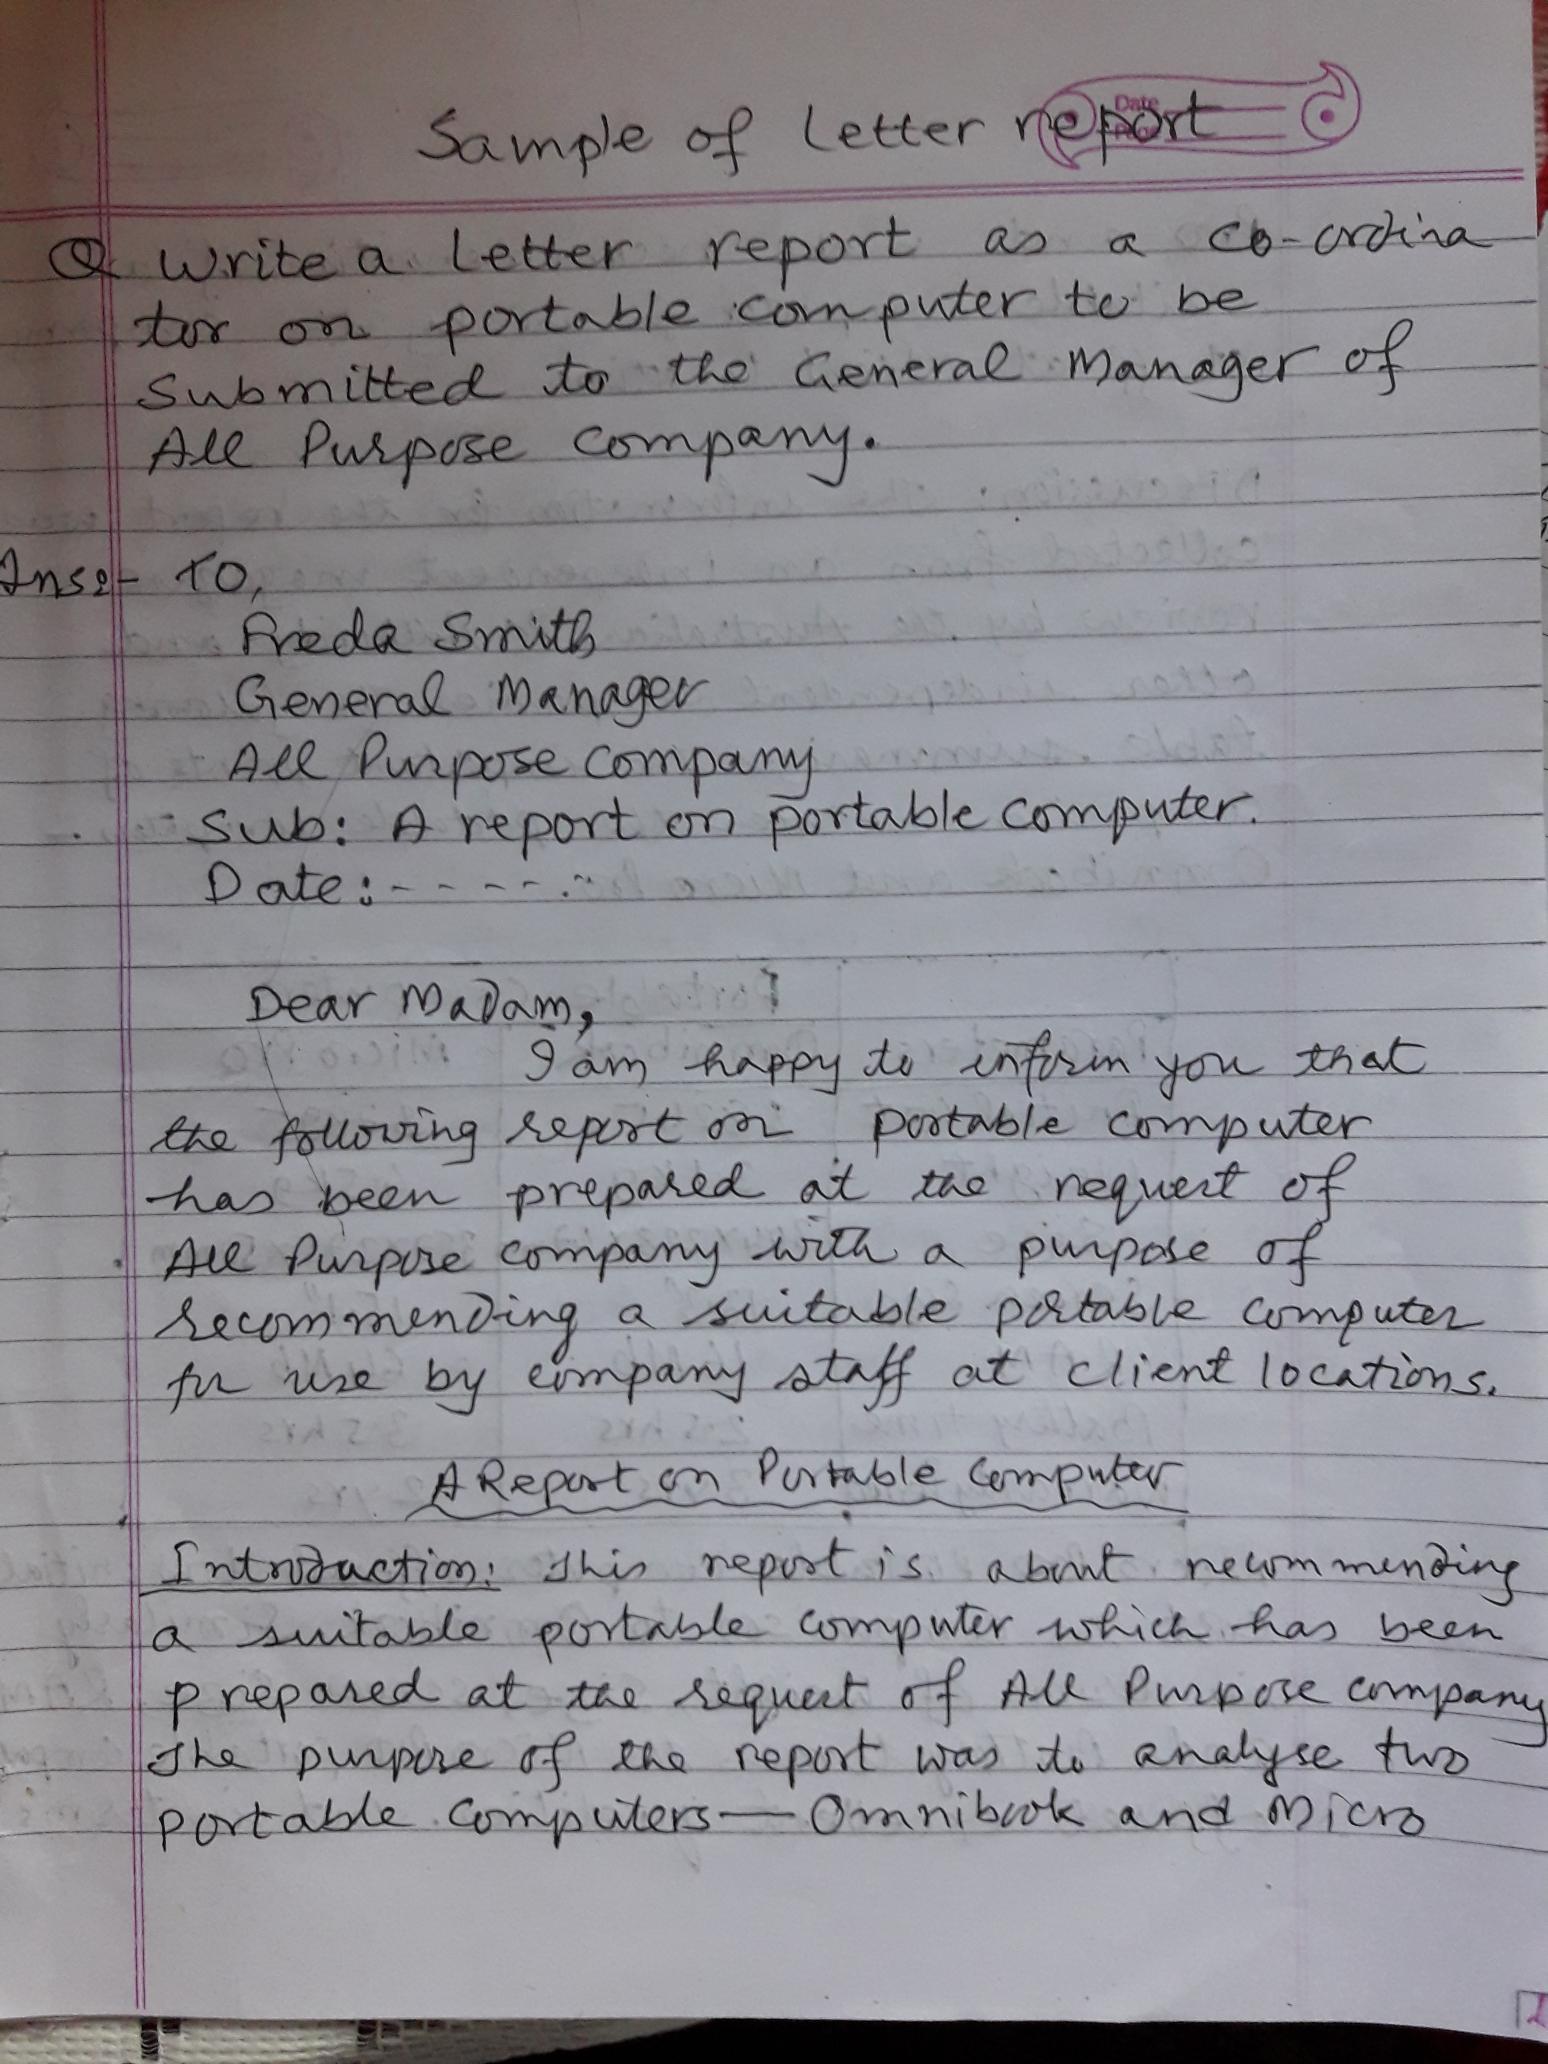 Date
Sample of Letter report
Q Write a Letter report as a co-ordina
tor on portable computer to be
Submitted to the General Manager of
All Purpose Company.
Ans:- To,
Freda Smith
General Manager
All Purpose Company
Sub: A report on portable computer.
Date:- - - - - ..
Dear Madam,
I am happy to inform you that
the following report on portable computer
has been prepared at the request of
All Purpose company with a purpose of
recommending a suitable portable computer
for use by company staff at client locations.
A Report on Portable Computer
Introduction: This report is about recommending
a suitable portable computer which has been
prepared at the request of All Purpose company
The purpose of the report was to analyse two
portable computers — Omnibook and Micro